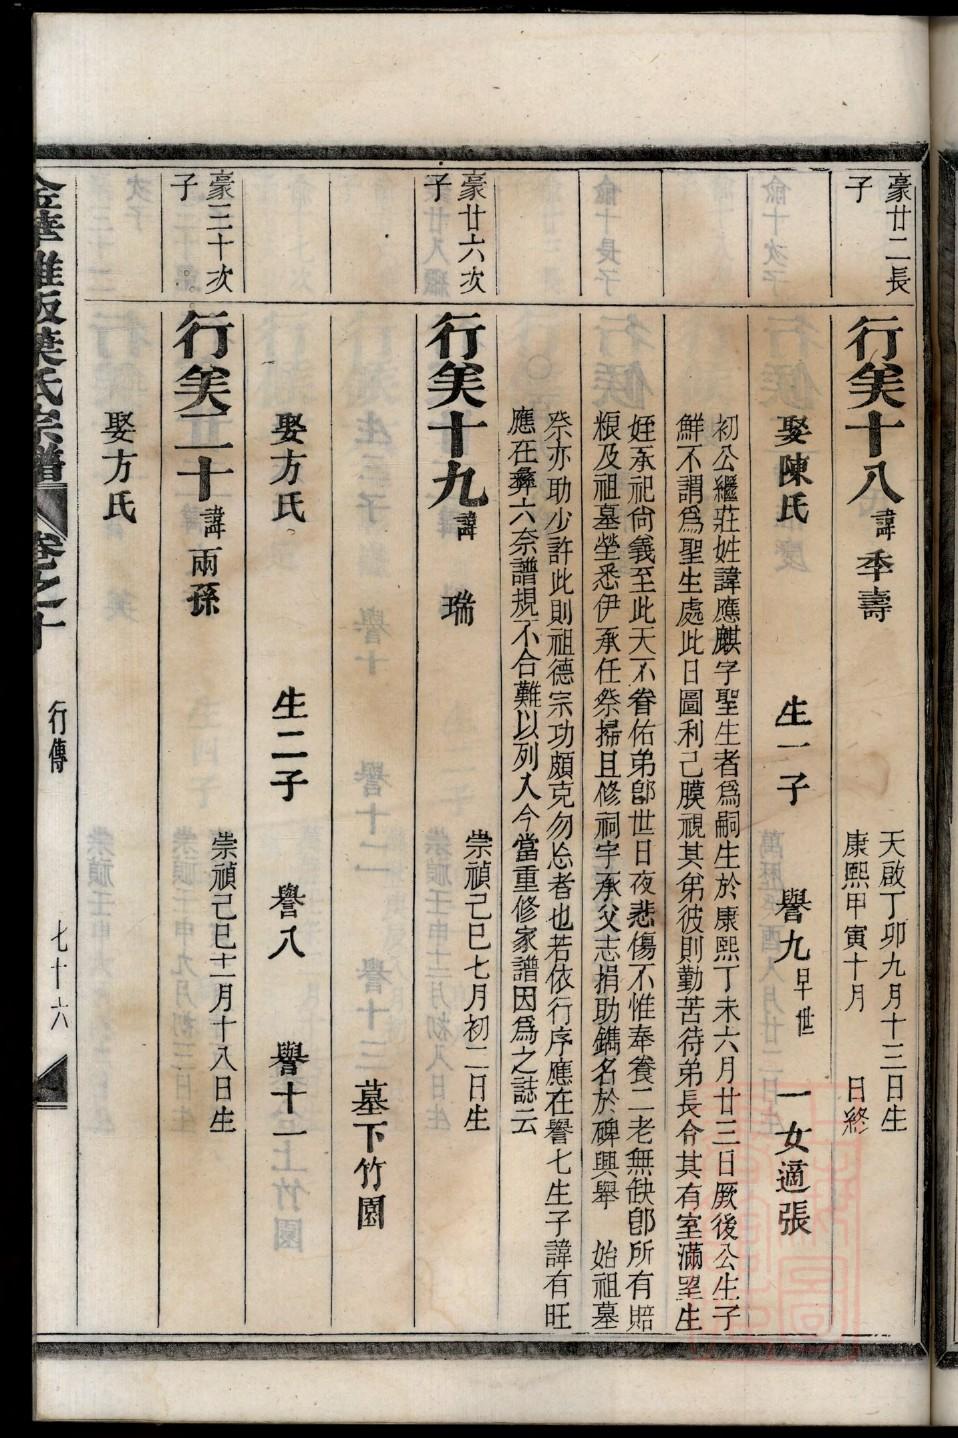 豪廿二長
子
行美十八諱季壽
天啟丁卯九月十三日生
康熙甲寅十月 日終
娶陳氏 生一子 譽九早世 一女適張
初公繼莊姓諱應麒字聖生者為嗣生於康熙丁未六月廿三日厥後公生子
鮮不謂為聖生處此日圖利己膜視其弟彼則勤苦待弟長合其有室滿望生
姪承祀尚義至此天不眷佑弟卽世日夜悲傷不惟奉養二老無缺卽所有賠
粮及祖墓塋悉伊承任祭掃且修祠宇承父志捐助鐫名於碑興舉 始祖墓
祭亦助少許此則祖德宗功頗克勿忘者也若依行序應在譽七生子諱有旺
應在彝六奈譜規不合難以列入今當重修家譜因為之誌云
豪廿六次
子
行美十九諱 瑞
崇禎己巳七月初二日生
墓下竹園
娶方氏 生二子 譽八 譽十一
豪三十次
子
行美二十諱兩孫
崇禎己巳十一月十八日生
娶方氏
氏宗譜 卷之十 行傳 七十六